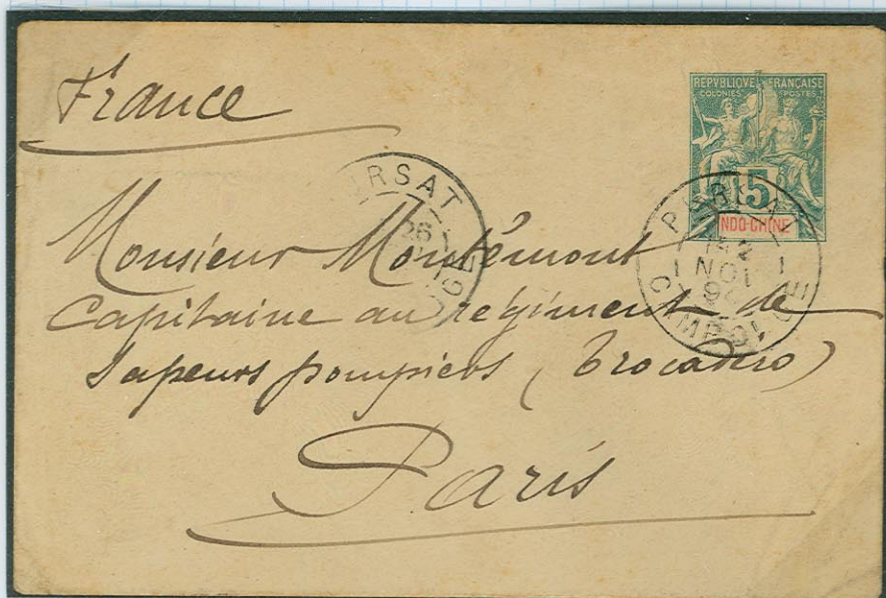 France
REPVBLIQUE FRANÇAISE
COLONIES POSTES
5
INDO-CHINE
PURSAT
NO
CAMBODGE
URSAT
26
GE
Monsieur Montémont
Capitaine au régiment de
Sapeurs pompiers (Trocadéro)
Paris